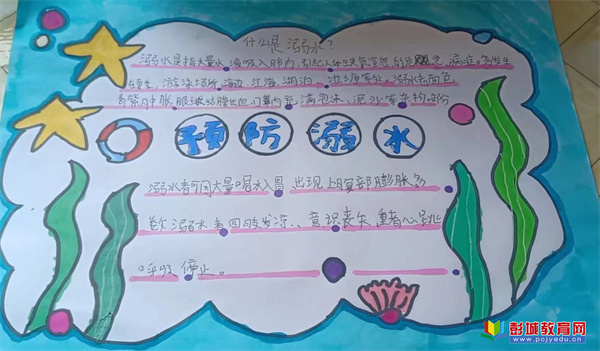 什么是溺水？
溺水是指大量水液吸入肺内，引起人体缺氧窒息的危急病症。多发生
在夏季，游泳场所、海边、江海、湖泊、池塘等处。溺水者面色
青紫肿胀眼球结膜出血，口鼻内充满泡沫、泥沙等杂物。部分
预防溺水
溺水者可因大量喝水入胃，出现上腹部膨胀。多
数溺水者四肢发凉、意识丧失，重者心跳
呼吸停止。
彭城教育网
www.pcjyedu.cn